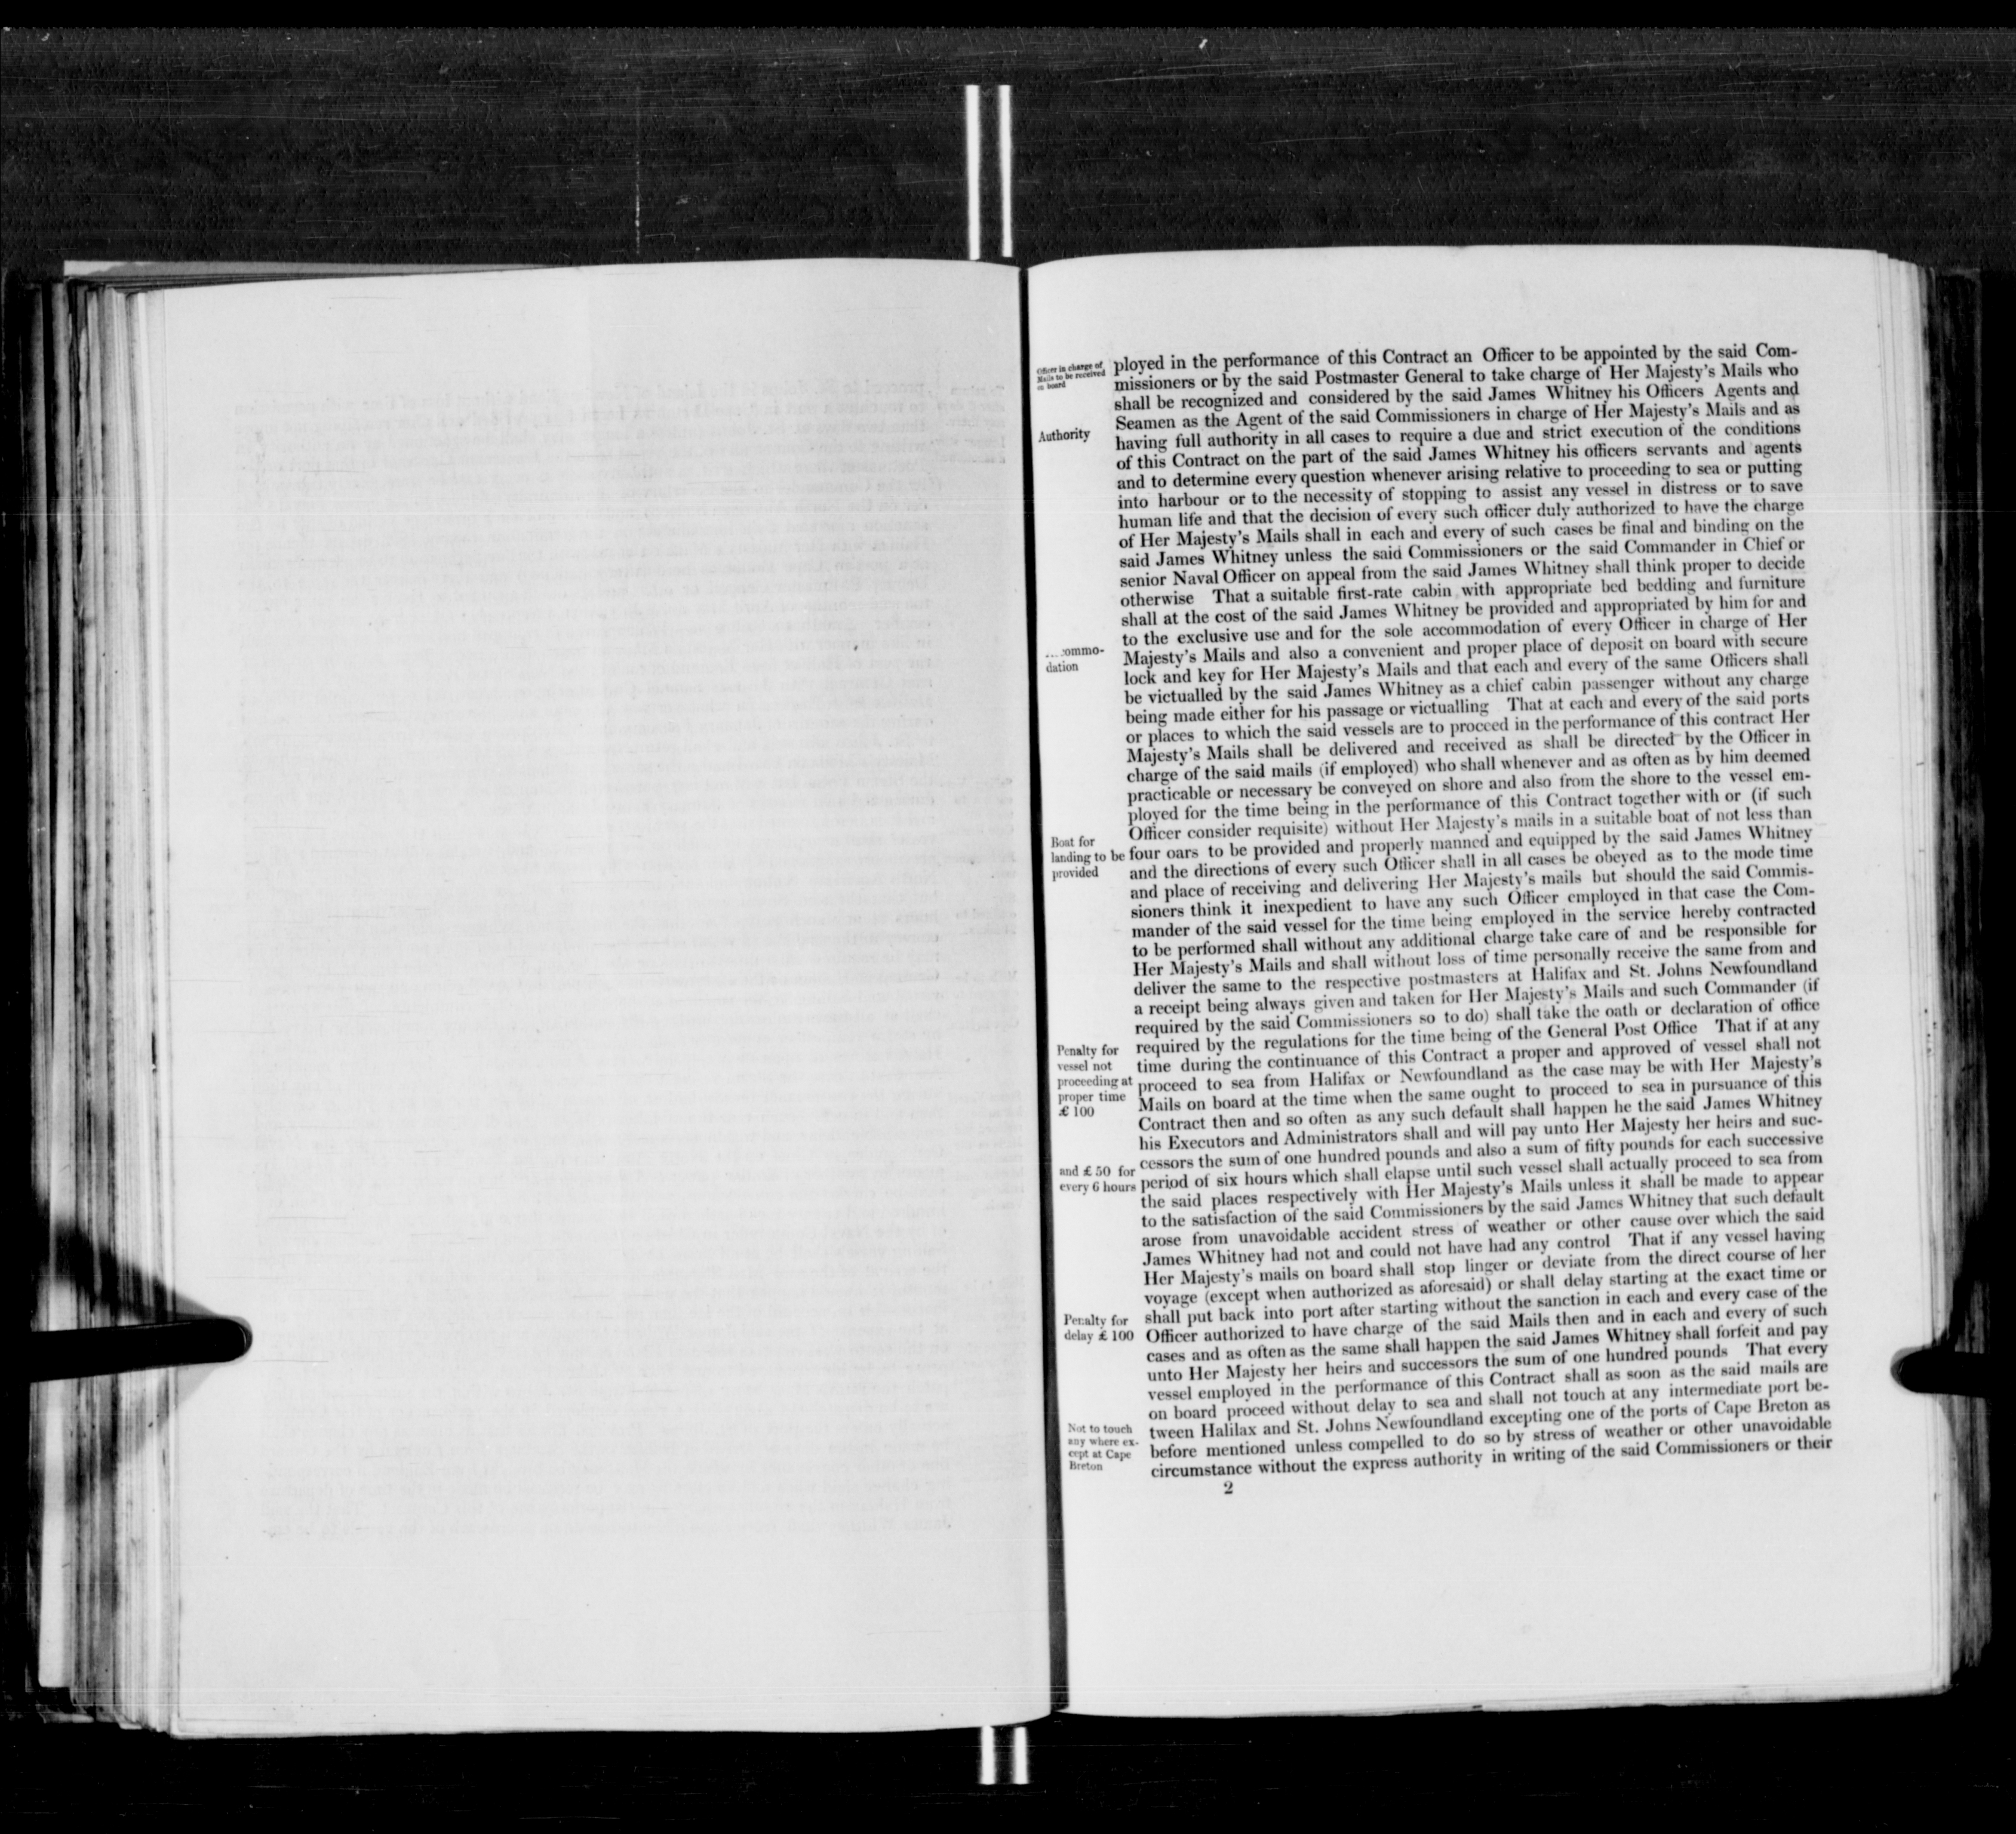 Officer in charge of
Mails to be received
on board
ployed in the performance of this Contract an Officer to be appointed by the said Com-
missioners or by the said Postmaster General to take charge of Her Majesty's Mails who
shall be recognized and considered by the said James Whitney his Officers Agents and
Seamen as the Agent of the said Commissioners in charge of Her Majesty's Mails and as
Authority
having full authority in all cases to require a due and strict execution of the conditions
of this Contract on the part of the said James Whitney his officers servants and agents
and to determine every question whenever arising relative to proceeding to sea or putting
into harbour or to the necessity of stopping to assist any vessel in distress or to save
human life and that the decision of every such officer duly authorized to have the charge
of Her Majesty's Mails shall in each and every of such cases be final and binding on the
said James Whitney unless the said Commissioners or the said Commander in Chief or
senior Naval Officer on appeal from the said James Whitney shall think proper to decide
otherwise That a suitable first-rate cabin with appropriate bed bedding and furniture
shall at the cost of the said James Whitney be provided and appropriated by him for and
to the exclusive use and for the sole accommodation of every Officer in charge of Her
ommo-
dation
Majesty's Mails and also a convenient and proper place of deposit on board with secure
lock and key for Her Majesty's Mails and that each and every of the same Officers shall
be victualled by the said James Whitney as a chief cabin passenger without any charge
being made either for his passage or victualling That at each and every of the said ports
or places to which the said vessels are to proceed in the performance of this contract Her
Majesty's Mails shall be delivered and received as shall be directed by the Officer in
charge of the said mails (if employed) who shall whenever and as often as by him deemed
practicable or necessary be conveyed on shore and also from the shore to the vessel em-
ployed for the time being in the performance of this Contract together with or (if such
Officer consider requisite) without Her Majesty's mails in a suitable boat of not less than
Boat for
landing to be
provided
four oars to be provided and properly manned and equipped by the said James Whitney
and the directions of every such Officer shall in all cases be obeyed as to the mode time
and place of receiving and delivering Her Majesty's mails but should the said Commis-
sioners think it inexpedient to have any such Officer employed in that case the Com-
mander of the said vessel for the time being employed in the service hereby contracted
to be performed shall without any additional charge take care of and be responsible for
Her Majesty's Mails and shall without loss of time personally receive the same from and
deliver the same to the respective postmasters at Halifax and St. Johns Newfoundland
a receipt being always given and taken for Her Majesty's Mails and such Commander (if
required by the said Commissioners so to do) shall take the oath or declaration of office
required by the regulations for the time being of the General Post Office That if at any
Penalty for
vessel not
proceeding at
proper time
£ 100
time during the continuance of this Contract a proper and approved of vessel shall not
proceed to sea from Halifax or Newfoundland as the case may be with Her Majesty's
Mails on board at the time when the same ought to proceed to sea in pursuance of this
Contract then and so often as any such default shall happen he the said James Whitney
his Executors and Administrators shall and will pay unto Her Majesty her heirs and suc-
cessors the sum of one hundred pounds and also a sum of fifty pounds for each successive
and £ 50 for
every 6 hours
period of six hours which shall elapse until such vessel shall actually proceed to sea from
the said places respectively with Her Majesty's Mails unless it shall be made to appear
to the satisfaction of the said Commissioners by the said James Whitney that such default
arose from unavoidable accident stress of weather or other cause over which the said
James Whitney had not and could not have had any control That if any vessel having
Her Majesty's mails on board shall stop linger or deviate from the direct course of her
voyage (except when authorized as aforesaid) or shall delay starting at the exact time or
shall put back into port after starting without the sanction in each and every case of the
Penalty for
delay £ 100
Officer authorized to have charge of the said Mails then and in each and every of such
cases and as often as the same shall happen the said James Whitney shall forfeit and pay
unto Her Majesty her heirs and successors the sum of one hundred pounds That every
vessel employed in the performance of this Contract shall as soon as the said mails are
on board proceed without delay to sea and shall not touch at any intermediate port be-
Not to touch
any where ex-
cept at Cape
Breton
tween Halilax and St. Johns Newfoundland excepting one of the ports of Cape Breton as
before mentioned unless compelled to do so by stress of weather or other unavoidable
circumstance without the express authority in writing of the said Commissioners or their
2